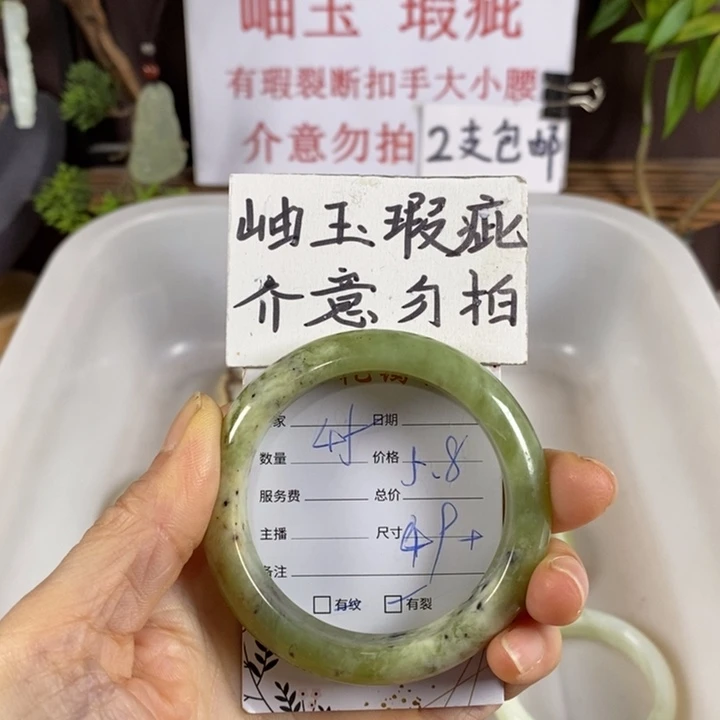 岫玉 瑕疵
有瑕裂断扣手大小腰
介意勿拍
2支包邮
岫玉瑕疵
介意勿拍
家 日期
数量 价格 5.8
服务费 总价
主播 尺寸 49+
备注
有纹 有裂